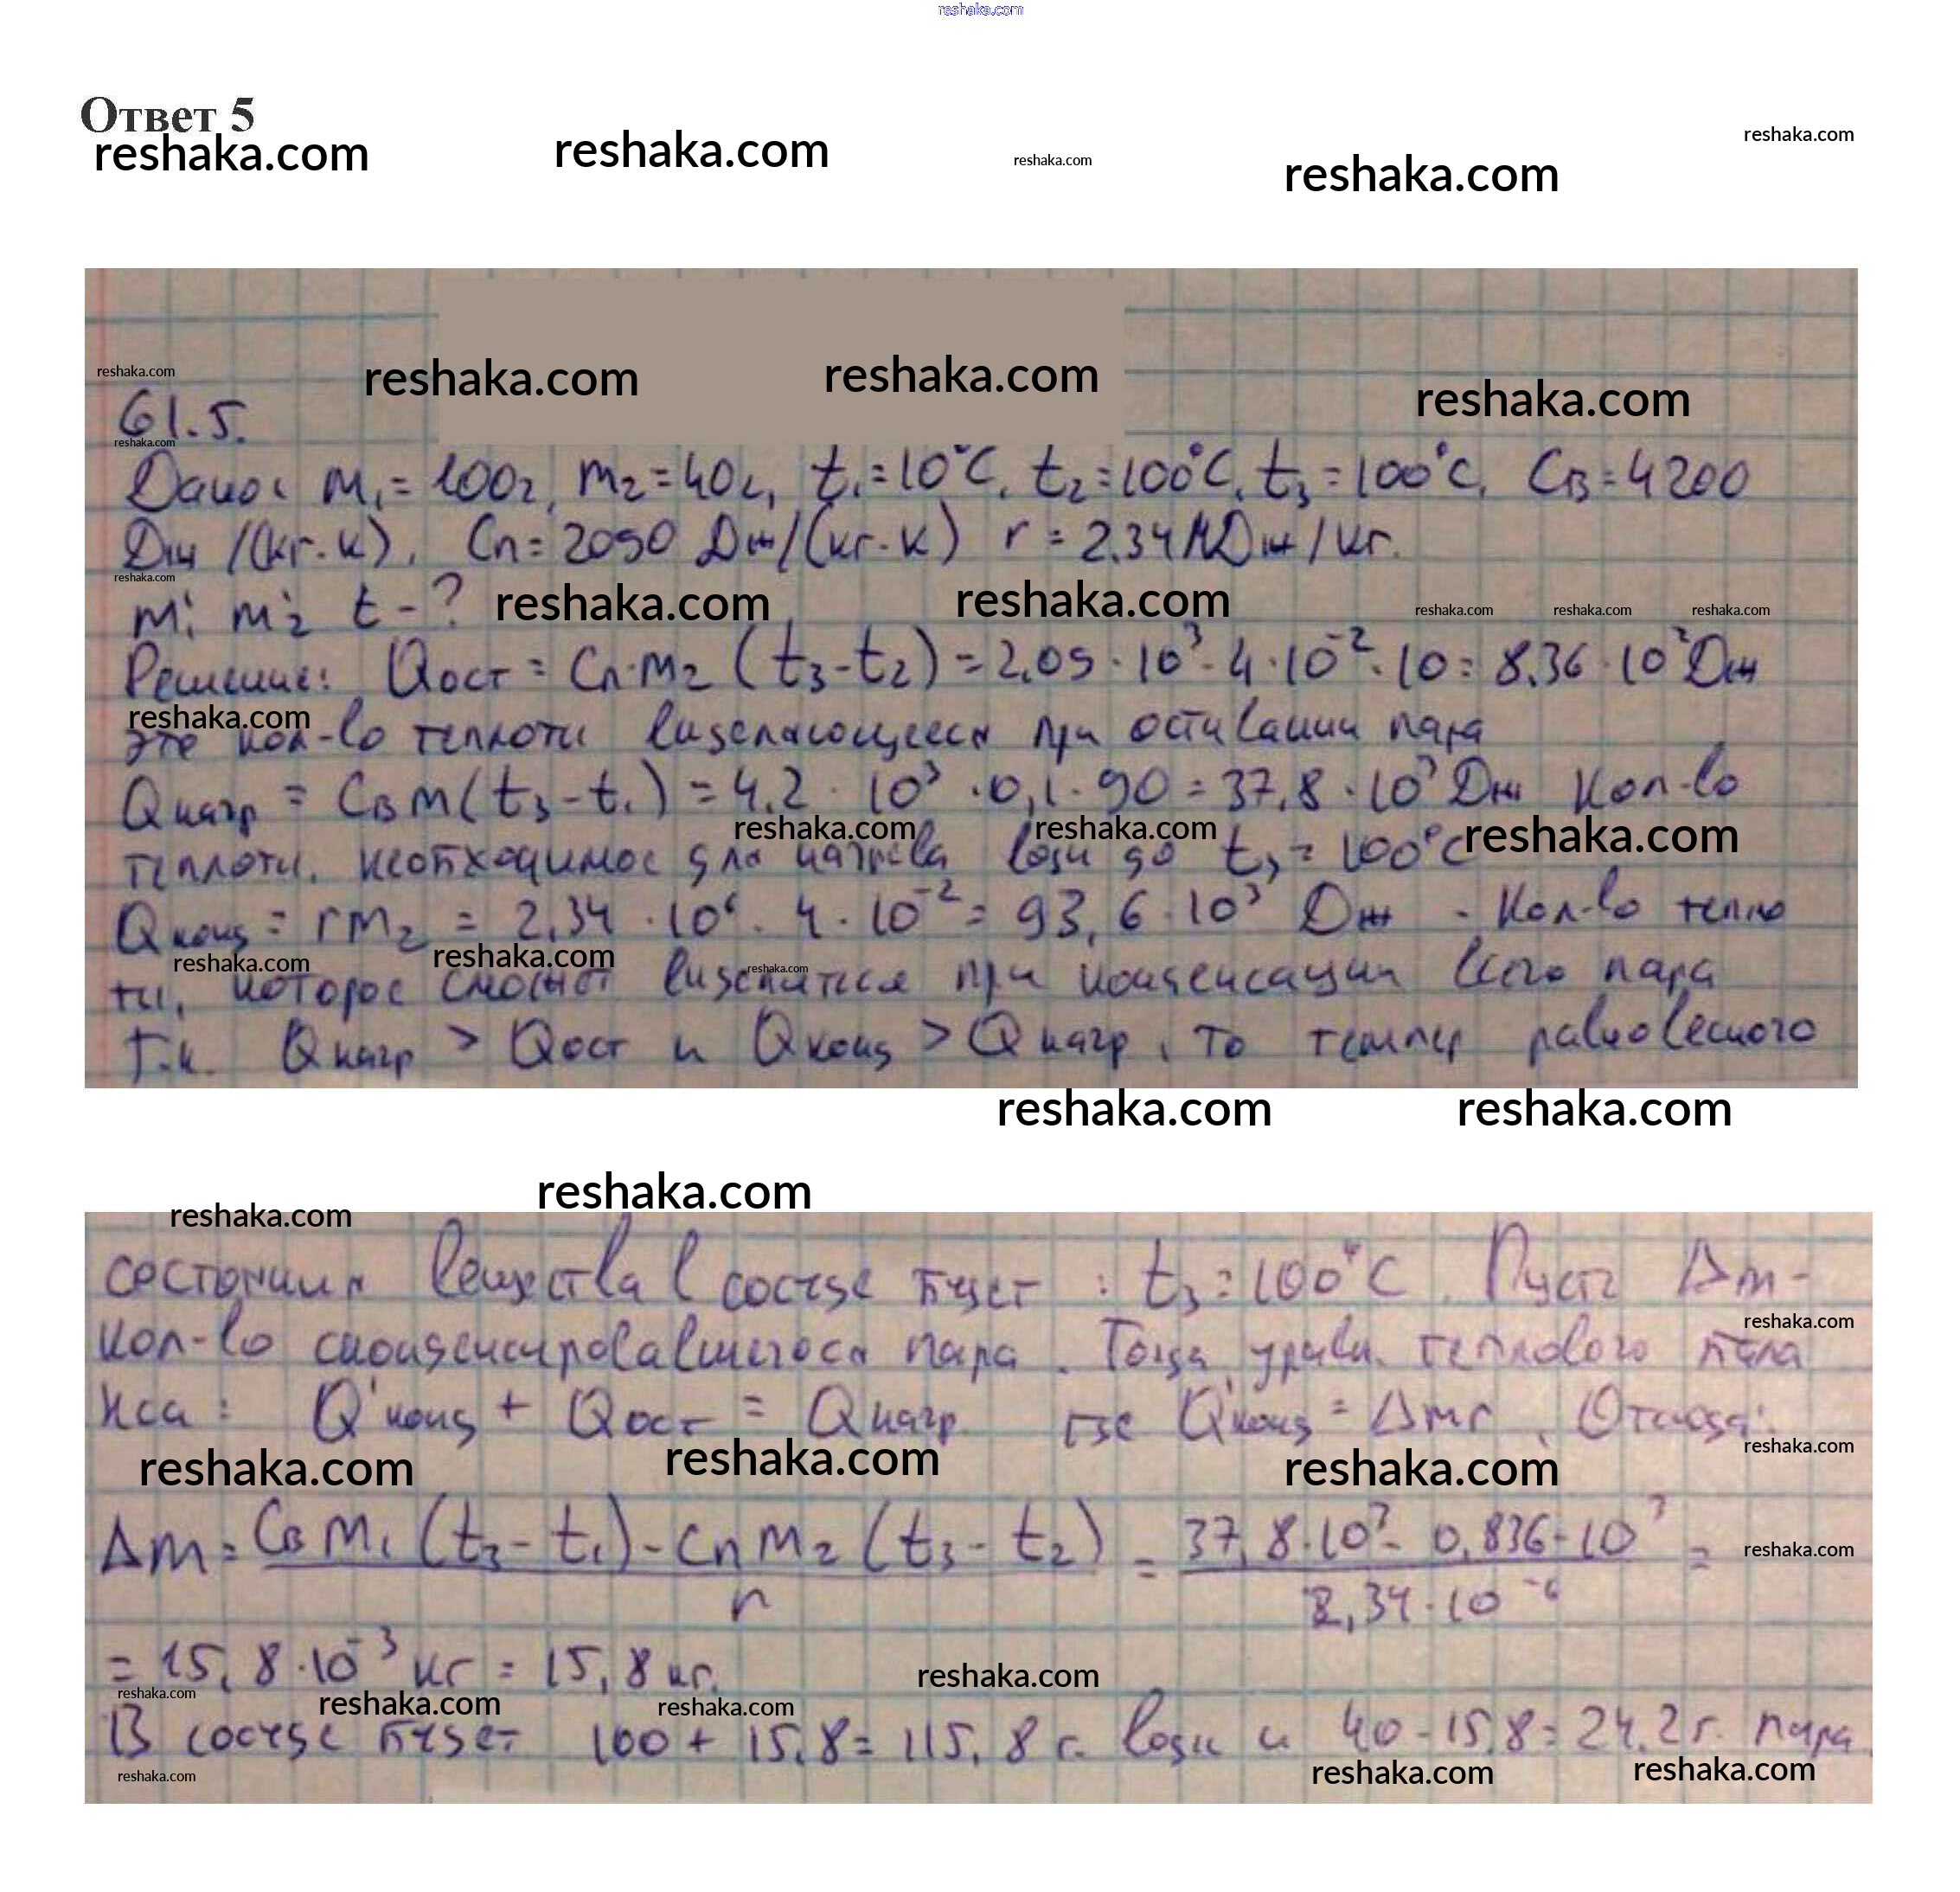 reshaka.com
Ответ 5
reshaka.com reshaka.com reshaka.com reshaka.com reshaka.com
reshaka.com reshaka.com reshaka.com reshaka.com
61.5.
reshaka.com
Дано: m₁ = 100г, m₂ = 40г, t₁ = 10°C, t₂ = 100°C, t₃ = 100°C, Cв = 4200
Дж/(кг·к), Cп = 2090 Дж/(кг·к) r = 2.34 МДж/кг.
reshaka.com
m₁' m₂' t - ? reshaka.com reshaka.com reshaka.com reshaka.com reshaka.com
Решение: Qост = Cп·m₂ (t₃ - t₂) = 2,09 · 10³ · 4 · 10⁻² · 10 = 8,36 · 10² Дж
reshaka.com
это кол-во теплоты выделяющееся при остывании пара
Qнагр = Cв m (t₃ - t₁) = 4,2 · 10³ · 0,1 · 90 = 37,8 · 10³ Дж Кол-во
reshaka.com reshaka.com reshaka.com
теплоты, необходимое для нагрева воды до t₃ = 100°C
Qконд = rm₂ = 2,34 · 10⁶ · 4 · 10⁻² = 93,6 · 10³ Дж - Кол-во тепло
reshaka.com reshaka.com reshaka.com
ты, которое сможет выделиться при конденсации всего пара
Т.к. Qнагр > Qост и Qконд > Qнагр, то темпер равновесного
reshaka.com reshaka.com
reshaka.com reshaka.com
состояния вещества в сосуде будет : t₃ = 100°C. Пусть Δm -
reshaka.com
кол-во сконденсировавшегося пара. Тогда уравн. теплового бала
нса: Q'конд + Qост = Qнагр. где Q'конд = Δmr, Отсюда:
reshaka.com
reshaka.com reshaka.com reshaka.com
Δm = Cв m₁ (t₃ - t₁) - Cп m₂ (t₃ - t₂) / r = 37,8 · 10³ - 0,836 · 10³ / 2,34 · 10⁻⁶ =
reshaka.com
= 15,8 · 10⁻³ кг = 15,8 кг.
reshaka.com reshaka.com reshaka.com reshaka.com
В сосуде будет 100 + 15,8 = 115,8 г. воды и 40 - 15,8 = 24,2 г. пара
reshaka.com reshaka.com reshaka.com